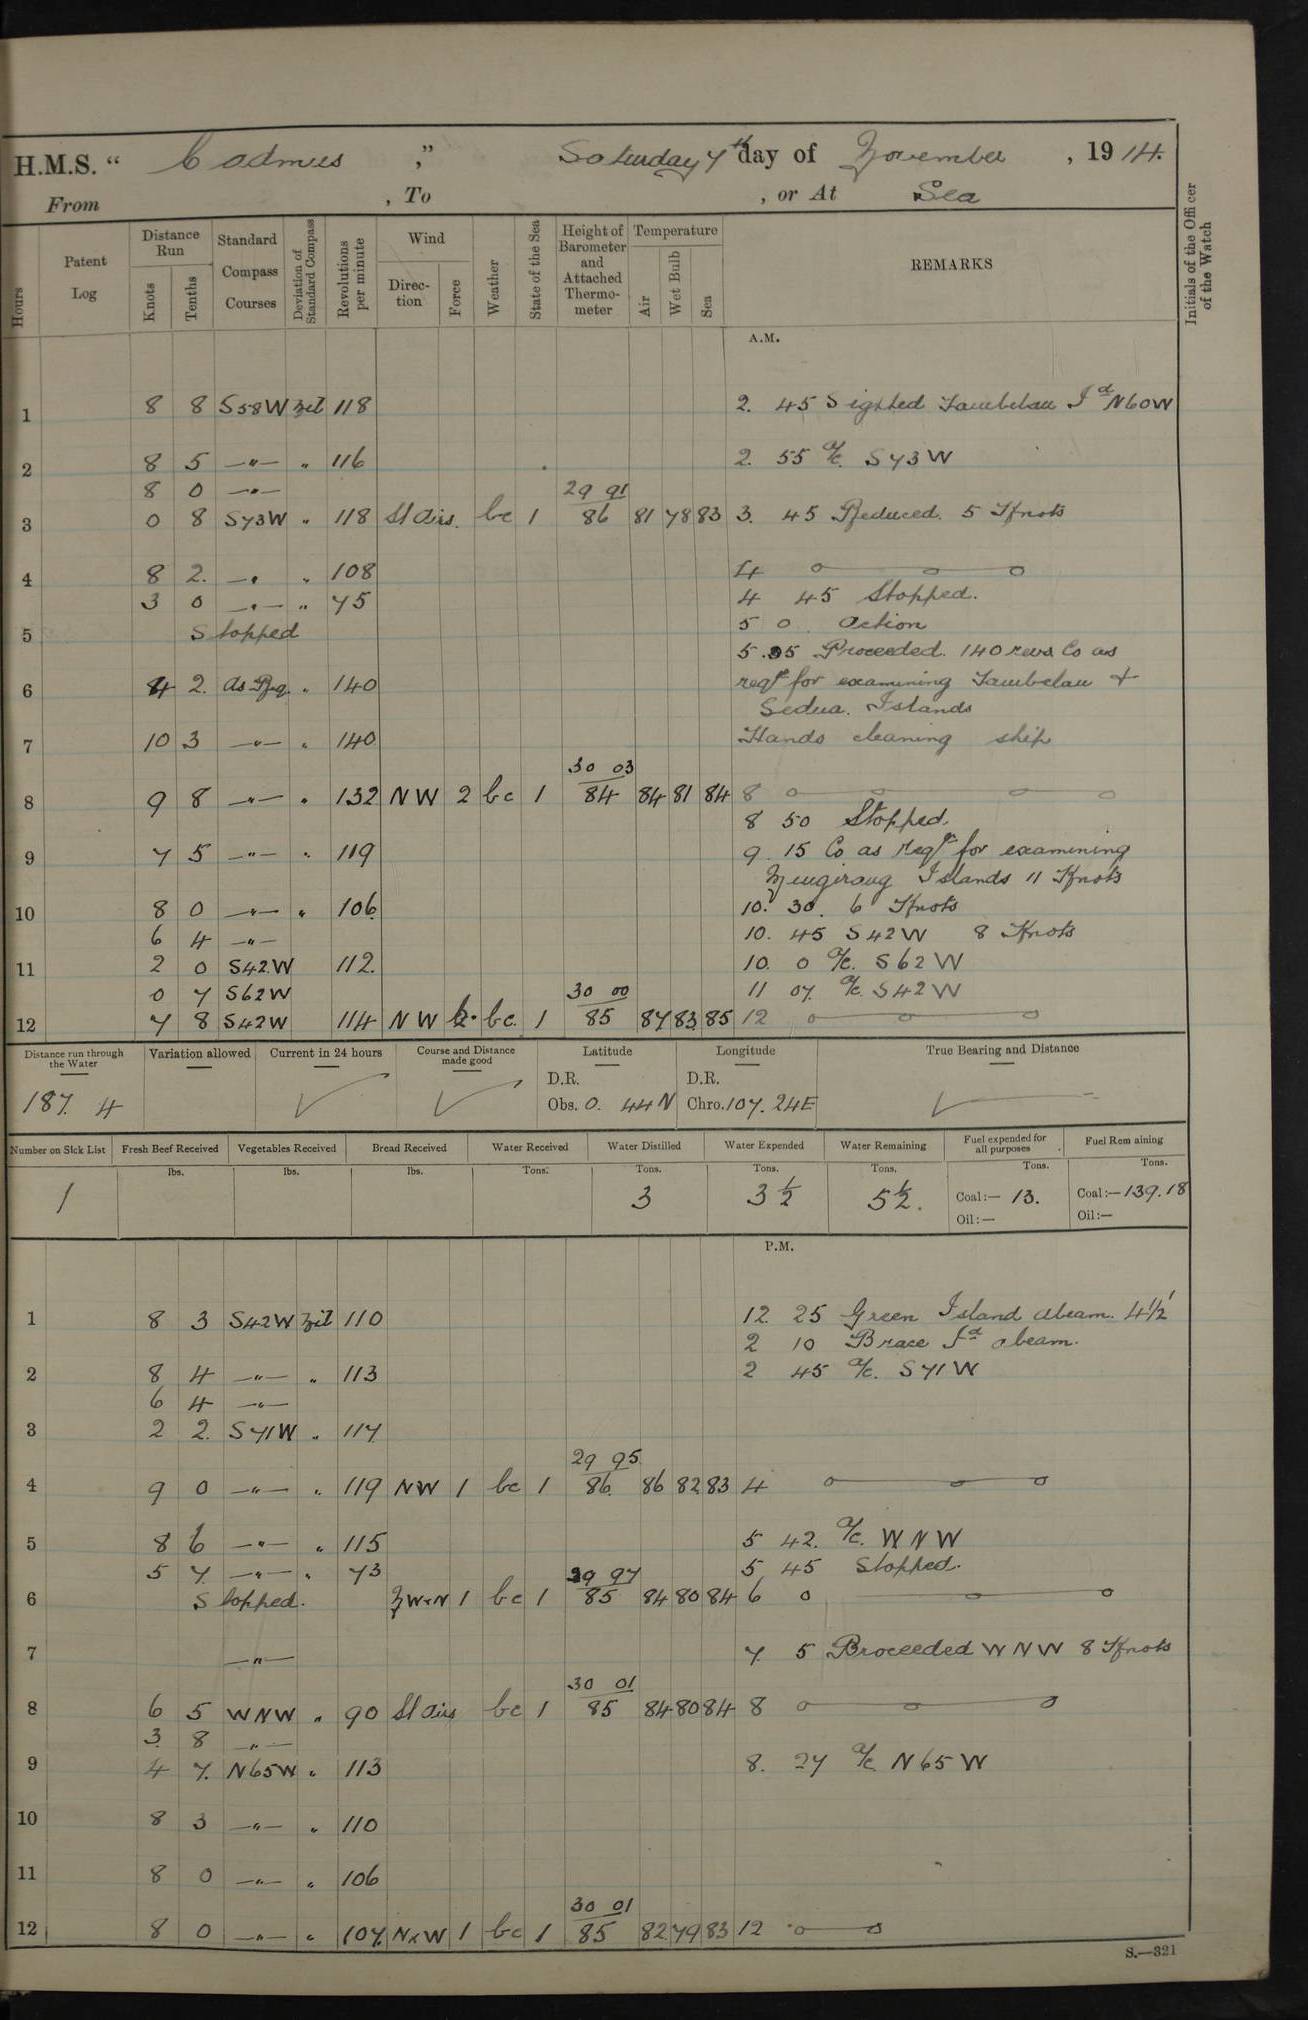 H.M.S. “ Cadmus ,” Saturday 7th day of November , 1914.
From , To , or At Sea
Hours
Patent Log
Distance Run
Knots
Tenths
Standard Compass Courses
Deviation of Standard Compass
Revolutions per minute
Wind
Direction
Force
Weather
State of the Sea
Height of Barometer and Attached Thermometer
Temperature
Air
Wet Bulb
Sea
REMARKS
Initials of the Officer of the Watch
A.M.
1 8 8 S58W Nil 118 2. 45 Sighted Tambelan Id N60W
2 8 5 —"— " 116 2. 55 a/c. S73W
8 0 —"— 29 91
3 0 8 S73W " 118 Lt airs. bc 1 86 81 78 83 3. 45 Reduced. 5 Knots
4 8 2. —"— " 108 4
3 0 —"— " 75 4 45 Stopped.
5 Stopped 5 0 Action
5.05 Proceeded. 140 revs Co as
6 4 2. As Req. " 140 reqd for examining Tambelan +
Sedua. Islands
7 10 3 —"— " 140 Hands cleaning ship
30 03
8 9 8 —"— " 132 NW 2 bc 1 84 84 81 84 8
8 50 Stopped.
9 7 5 —"— " 119 9. 15 Co as reqd for examining
Islands 11 Knots
10 8 0 —"— " 106 10. 30. 6 Knots
6 4 —"— 10. 45 S42W 8 Knots
11 2 0 S42W 112. 10. 0 a/c. S62W
0 7 S62W 30 00 11 07. a/c. S42W
12 7 8 S42W 114 NW 2. bc. 1 85 87 83 85 12
Distance run through the Water
Variation allowed
Current in 24 hours
Course and Distance made good
Latitude
Longitude
True Bearing and Distance
D.R. D.R.
187. 4 Obs. 0. 44N Chro. 107. 24E
Number on Sick List
Fresh Beef Received
Vegetables Received
Bread Received
Water Received
Water Distilled
Water Expended
Water Remaining
Fuel expended for all purposes
Fuel Remaining
lbs. lbs. lbs. Tons. Tons. Tons. Tons. Tons. Tons.
1 3 3½ 5½. Coal:— 13. Coal:—139.18
Oil:— Oil:—
P.M.
1 8 3 S42W Nil 110 12. 25 Green Island abeam. 4½'
2 10 Brace Id abeam.
2 8 4 —"— " 113 2 45 a/c. S71W
6 4 —"—
3 2 2. S71W " 117
29 95
4 9 0 —"— " 119 NW 1 bc 1 86. 86 82 83 4
5 8 6 —"— " 115 5 42. a/c. WNW
5 7. —"— " 73 29 97 5 45 Stopped.
6 Stopped. NWxN 1 bc 1 85 84 80 84 6
7 —"— 7. 5 Proceeded WNW 8 Knots
30 01
8 6 5 WNW " 90 Lt airs bc 1 85 84 80 84 8
3. 8 —"—
9 4 7. N65W " 113 8. 27 a/c N65W
10 8 3 —"— " 110
11 8 0 —"— " 106
30 01
12 8 0 —"— " 107. NxW 1 bc 1 85 82 79 83 12
S.—321